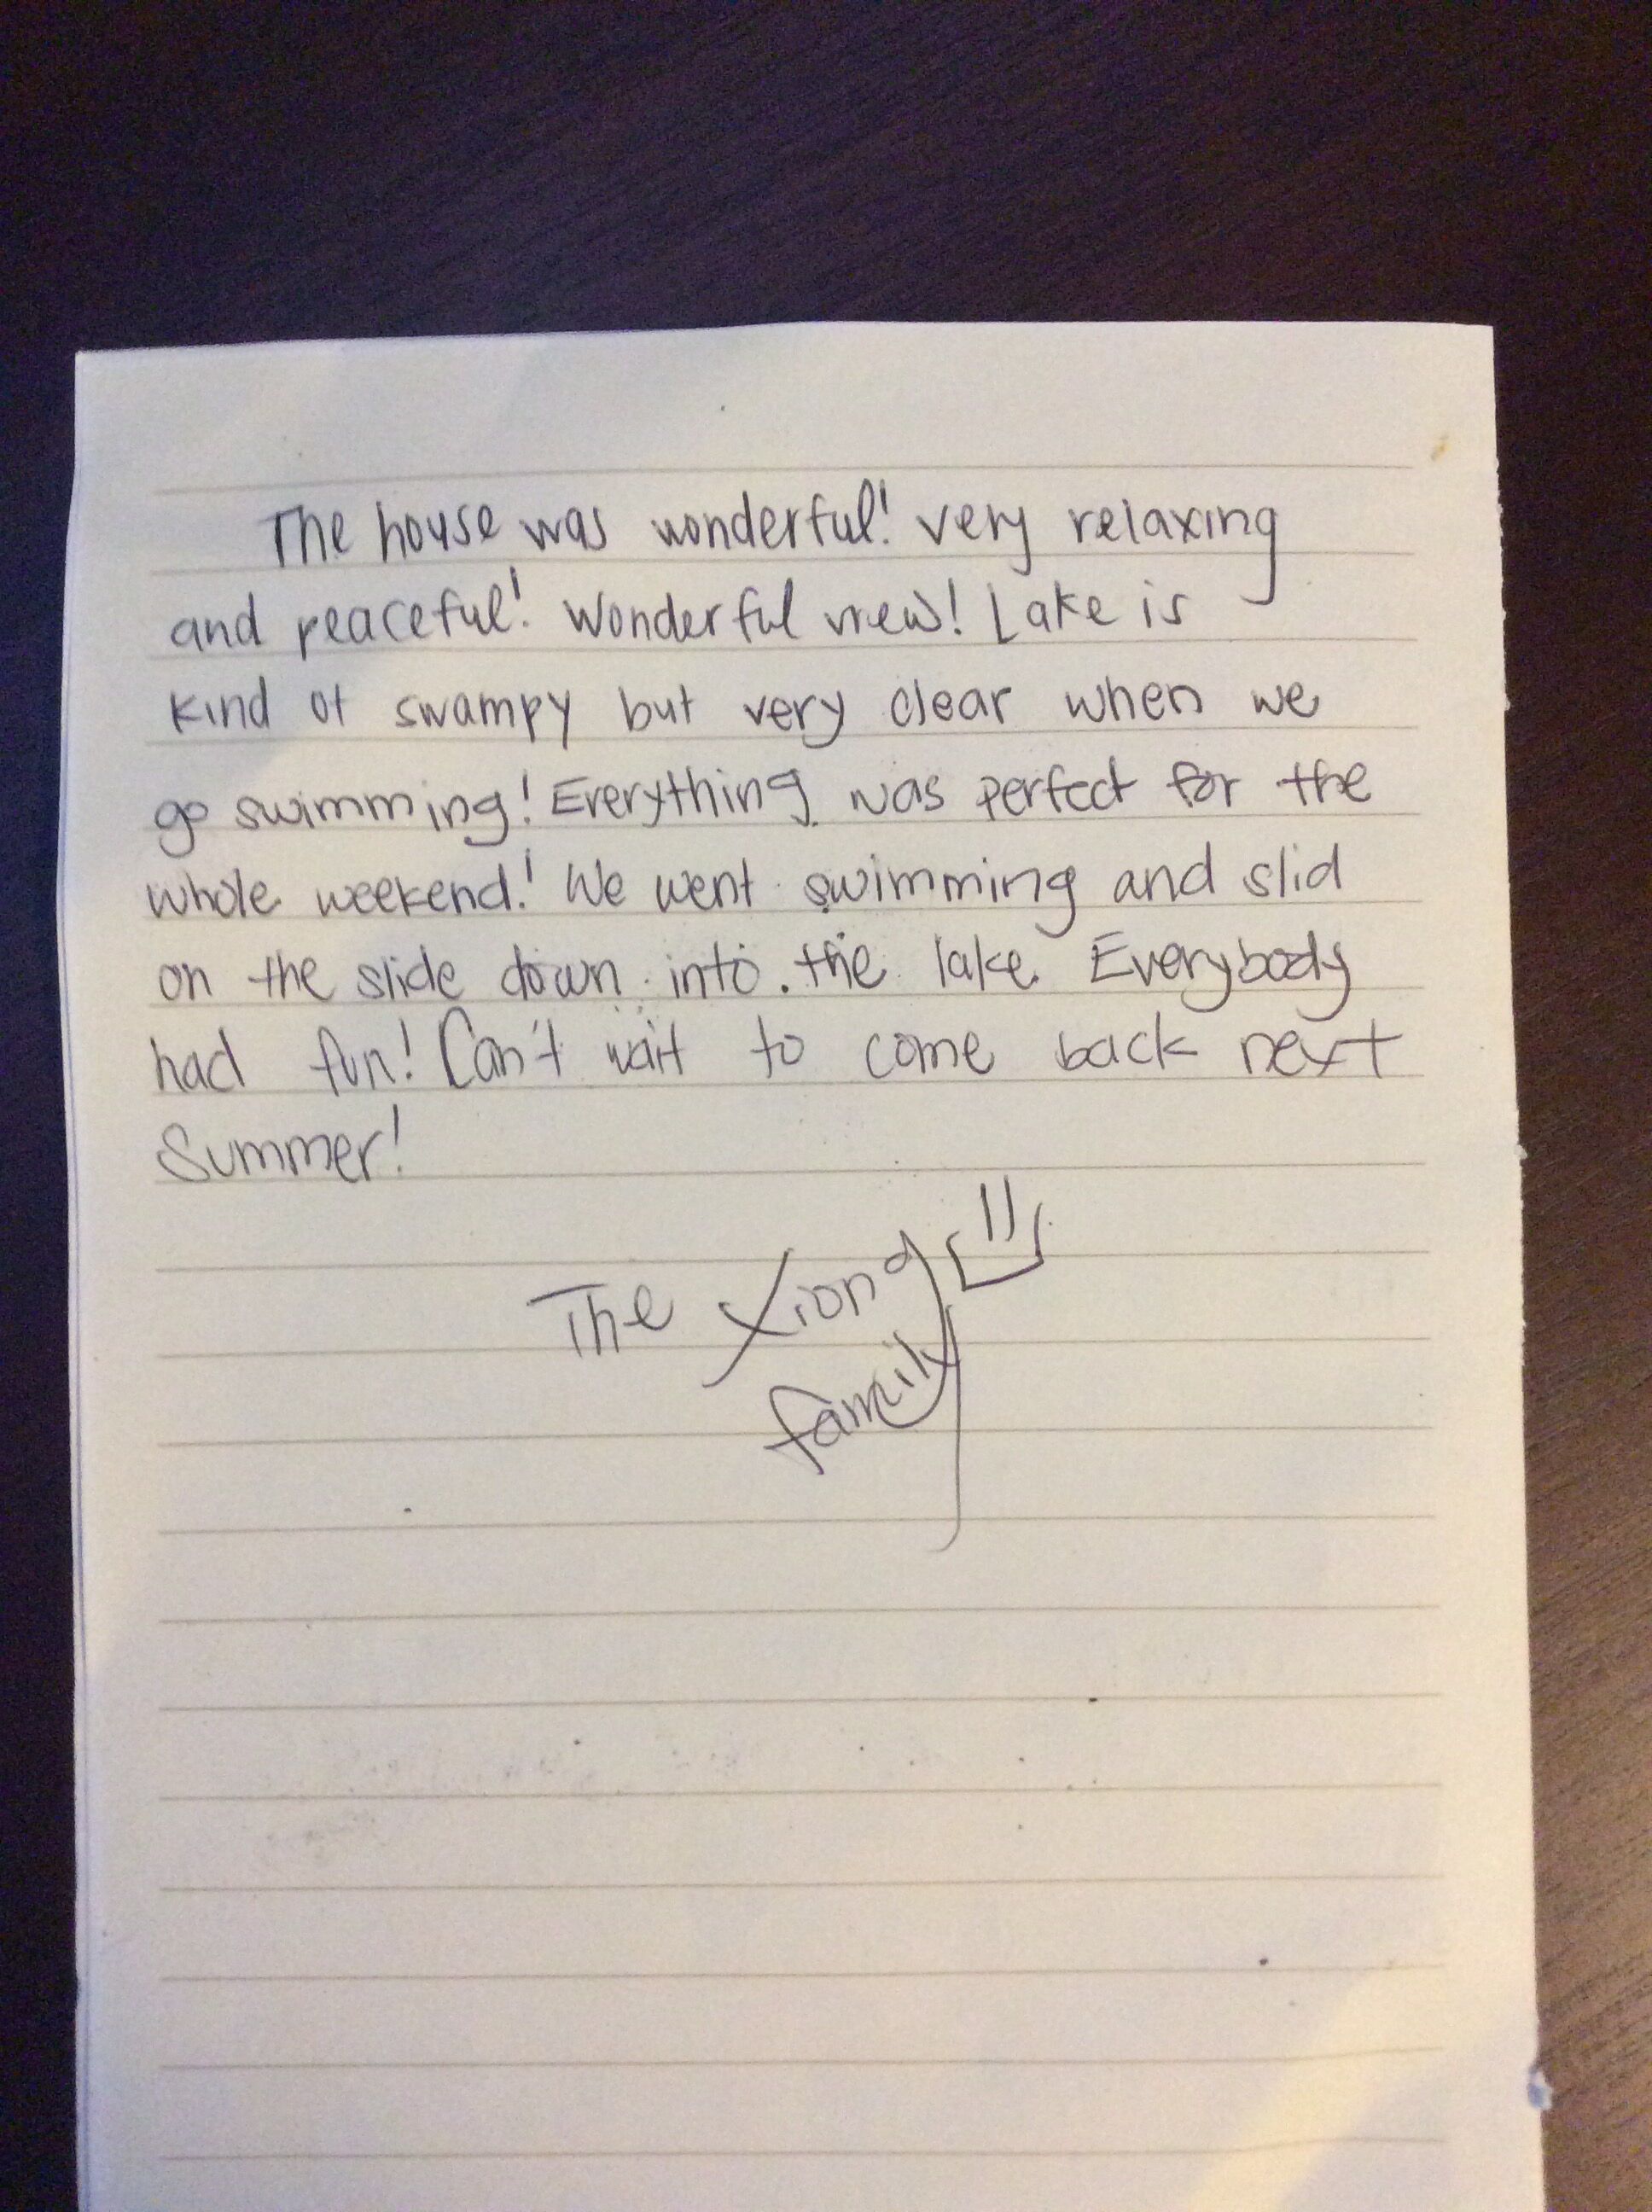 The house was wonderful! very relaxing
and peaceful! Wonderful view! Lake is
kind of swampy but very clear when we
go swimming! Everything was perfect for the
whole weekend! We went swimming and slid
on the slide down into the lake. Everybody
had fun! Can't wait to come back next
Summer!
The Xiong
family